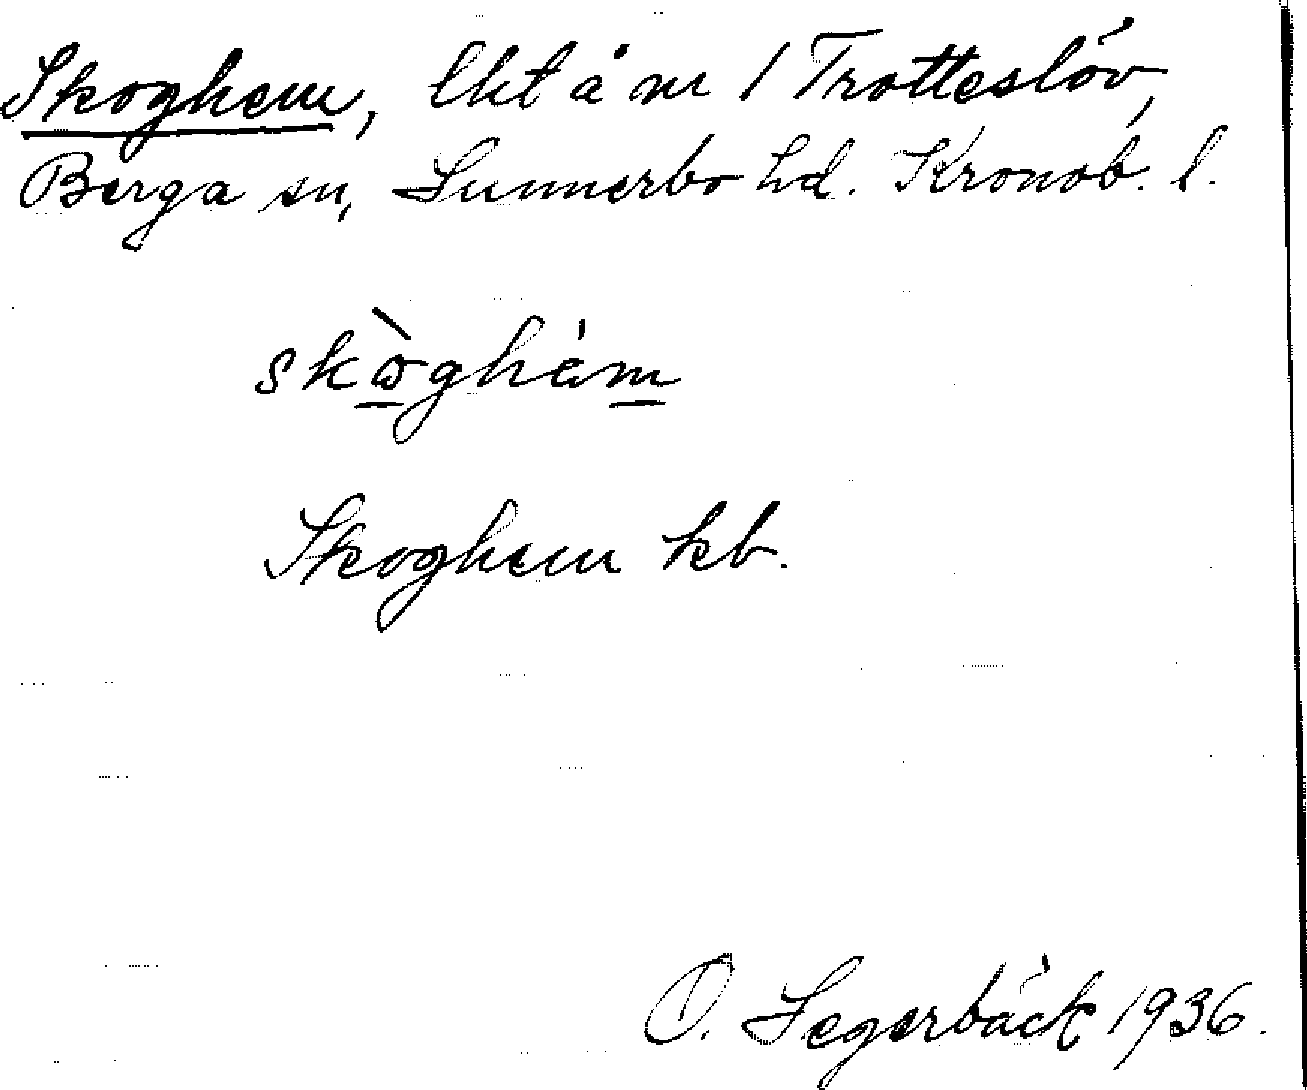 Skoghem, lht å nr 1 Trotteslöv,
Berga sn, Sunnerbo hd. Kronob. l.
skòghèm
Skoghem kb.
O. Segerbäck 1936.